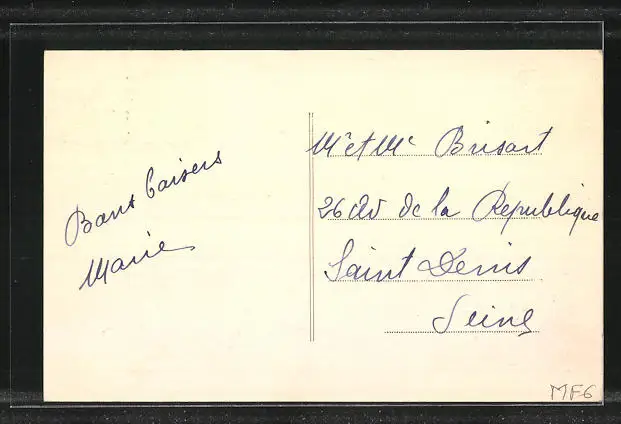 Bons baisers
Marie
Mr et Me Brisart
26 Av de la Republique
Saint Denis
Seine
MF6